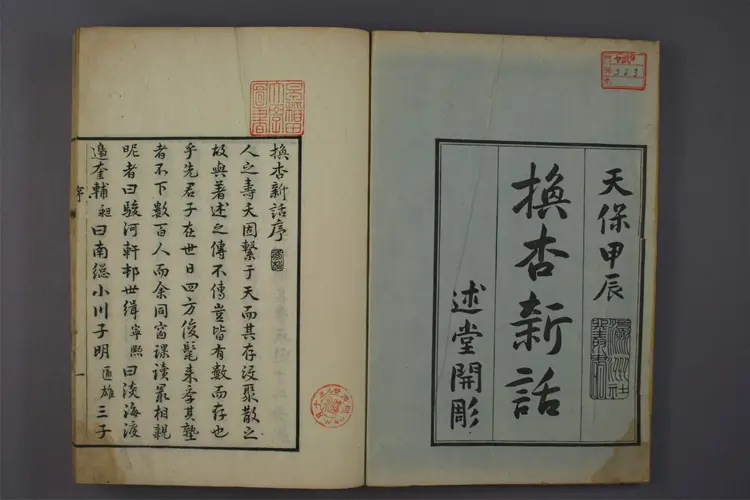 天保甲辰
換杏新話
述堂開彫
383
換杏新話序
人之壽夭固繫于天而其存没聚散之
故與著述之傳不傳豈皆有數而存也
乎先君子在世日四方俊髦来学其塾
者不下數百人而余同窗課讀最相親
昵者曰駿河軒邨世緝寧熙曰淡海渡
邉奎輔𥘵曰南總小川子明匡雄三子
序
一